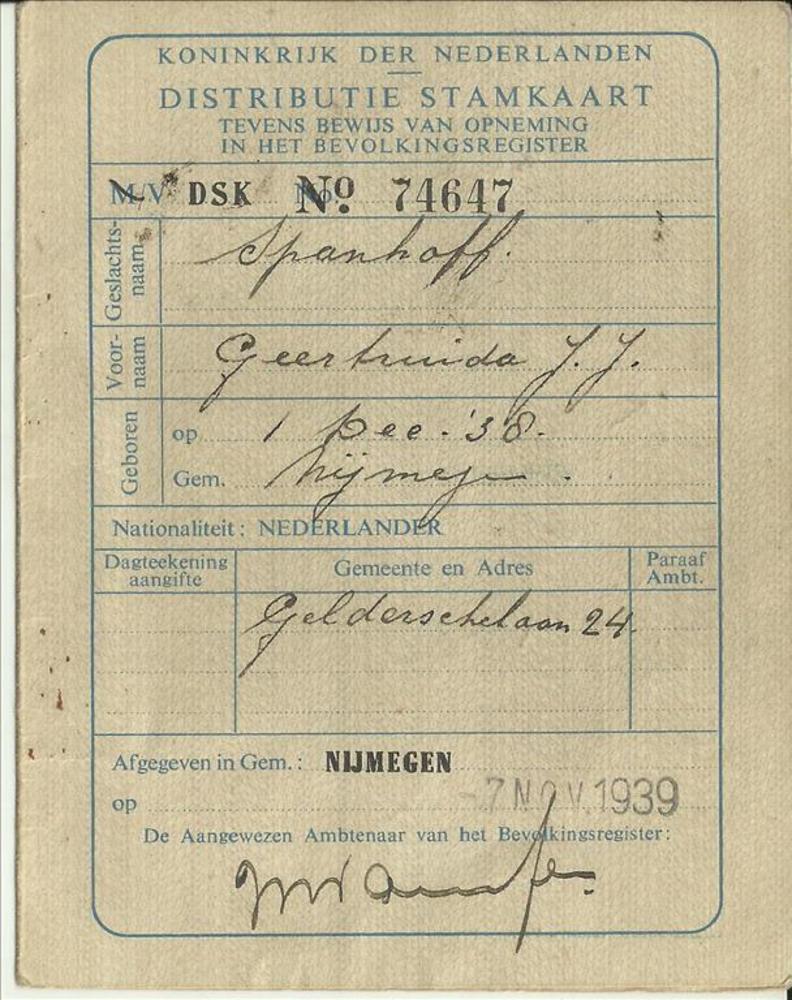 KONINKRIJK DER NEDERLANDEN
DISTRIBUTIE STAMKAART
TEVENS BEWIJS VAN OPNEMING
IN HET BEVOLKINGSREGISTER
M/V DSK No. 74647
Geslachts-
naam
Spanhoff.
Voor-
naam
Geertruida J. J.
Geboren
op 1 Dec. '38.
Gem. Nijmegen.
Nationaliteit: NEDERLANDER
Dagteekening
aangifte
Gemeente en Adres
Paraaf
Ambt.
Gelderschelaan 24.
Afgegeven in Gem.: NIJMEGEN
op -7 NOV. 1939
De Aangewezen Ambtenaar van het Bevolkingsregister: